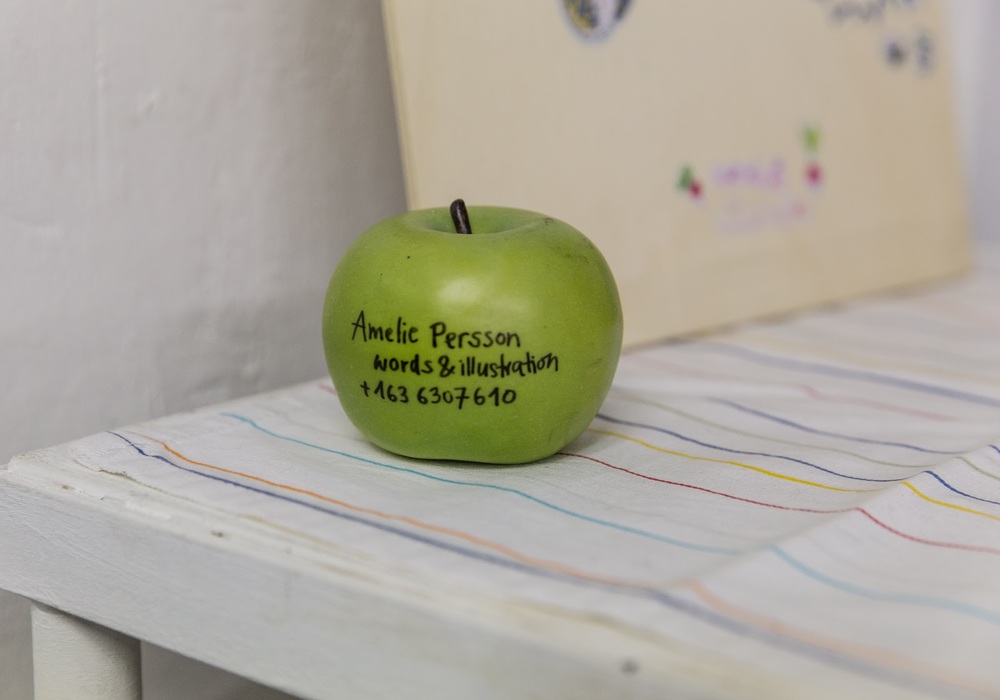 Amelie Persson
words & illustration
+163 6307610